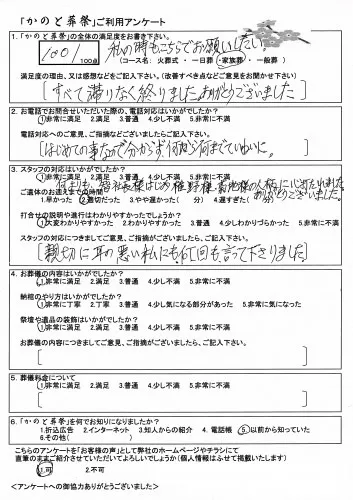 「かのと葬祭」ご利用アンケート
1.「かのと葬祭」の全体の満足度をお書き下さい。
100点 私の時もこちらでお願いしたい。
(コース名: 火葬式 ・ 一日葬 ・ 家族葬 ・ 一般葬 )
満足度の理由、又は感想などをご記入下さい。(改善すべき点などご意見をお聞かせ下さい)
すべて滞りなく終りました。ありがとうございました
2. お電話でお問合せいただいた際の、電話対応はいかがでしたか?
1.非常に満足 2.満足 3.普通 4.少し不満 5.非常に不満
電話対応へのご意見、ご指摘などございましたらご記入下さい。
はじめての事なので分からず、何から何までていねいに。
3. スタッフの対応はいかがでしたか?
1.非常に満足 2.満足 3.普通 4.少し不満 5.非常に不満
ご遺体のお迎えまでの時間
1.早かった 2.適切だった 3.やや遅かった( 分) 4.遅すぎた( 分)
ありがとうございました。
打合せの説明や進行はわかりやすかったでしょうか?
1.大変わかりやすかった 2.わかりやすかった 3.普通 4.少しわかりづらかった 5.非常に不満
スタッフの対応につきましてご意見、ご指摘がございましたら、ご記入下さい。
親切に耳の悪い私にも何回も言って下さりました
4. お葬儀の内容はいかがでしたか?
1.非常に満足 2.満足 3.普通 4.少し不満 5.非常に不満
納棺のやり方はいかがでしたか?
1.非常に丁寧 2.丁寧 3.普通 4.少し気になる部分があった 5.非常に気になった
祭壇や遺品の装飾はいかがでしたか?
1.非常に満足 2.満足 3.普通 4.少し不満 5.非常に不満
お葬儀の内容につきましてご意見、ご指摘がございましたら、ご記入下さい。
5. お葬儀料金について
1.非常に満足 2.満足 3.普通 4.少し不満 5.非常に不満
6. 「かのと葬祭」を何でお知りになりましたか?
1.折込広告 2.インターネット 3.知人からの紹介 4. 電話帳 5.以前から知っていた
6.その他( )
こちらのアンケートを「お客様の声」として弊社のホームページやチラシにて
直筆のままご紹介させていただいてよろしいでしょうか(個人情報はふせて掲載いたします)
1.可 2.不可
<アンケートへの御協力ありがとうございました>